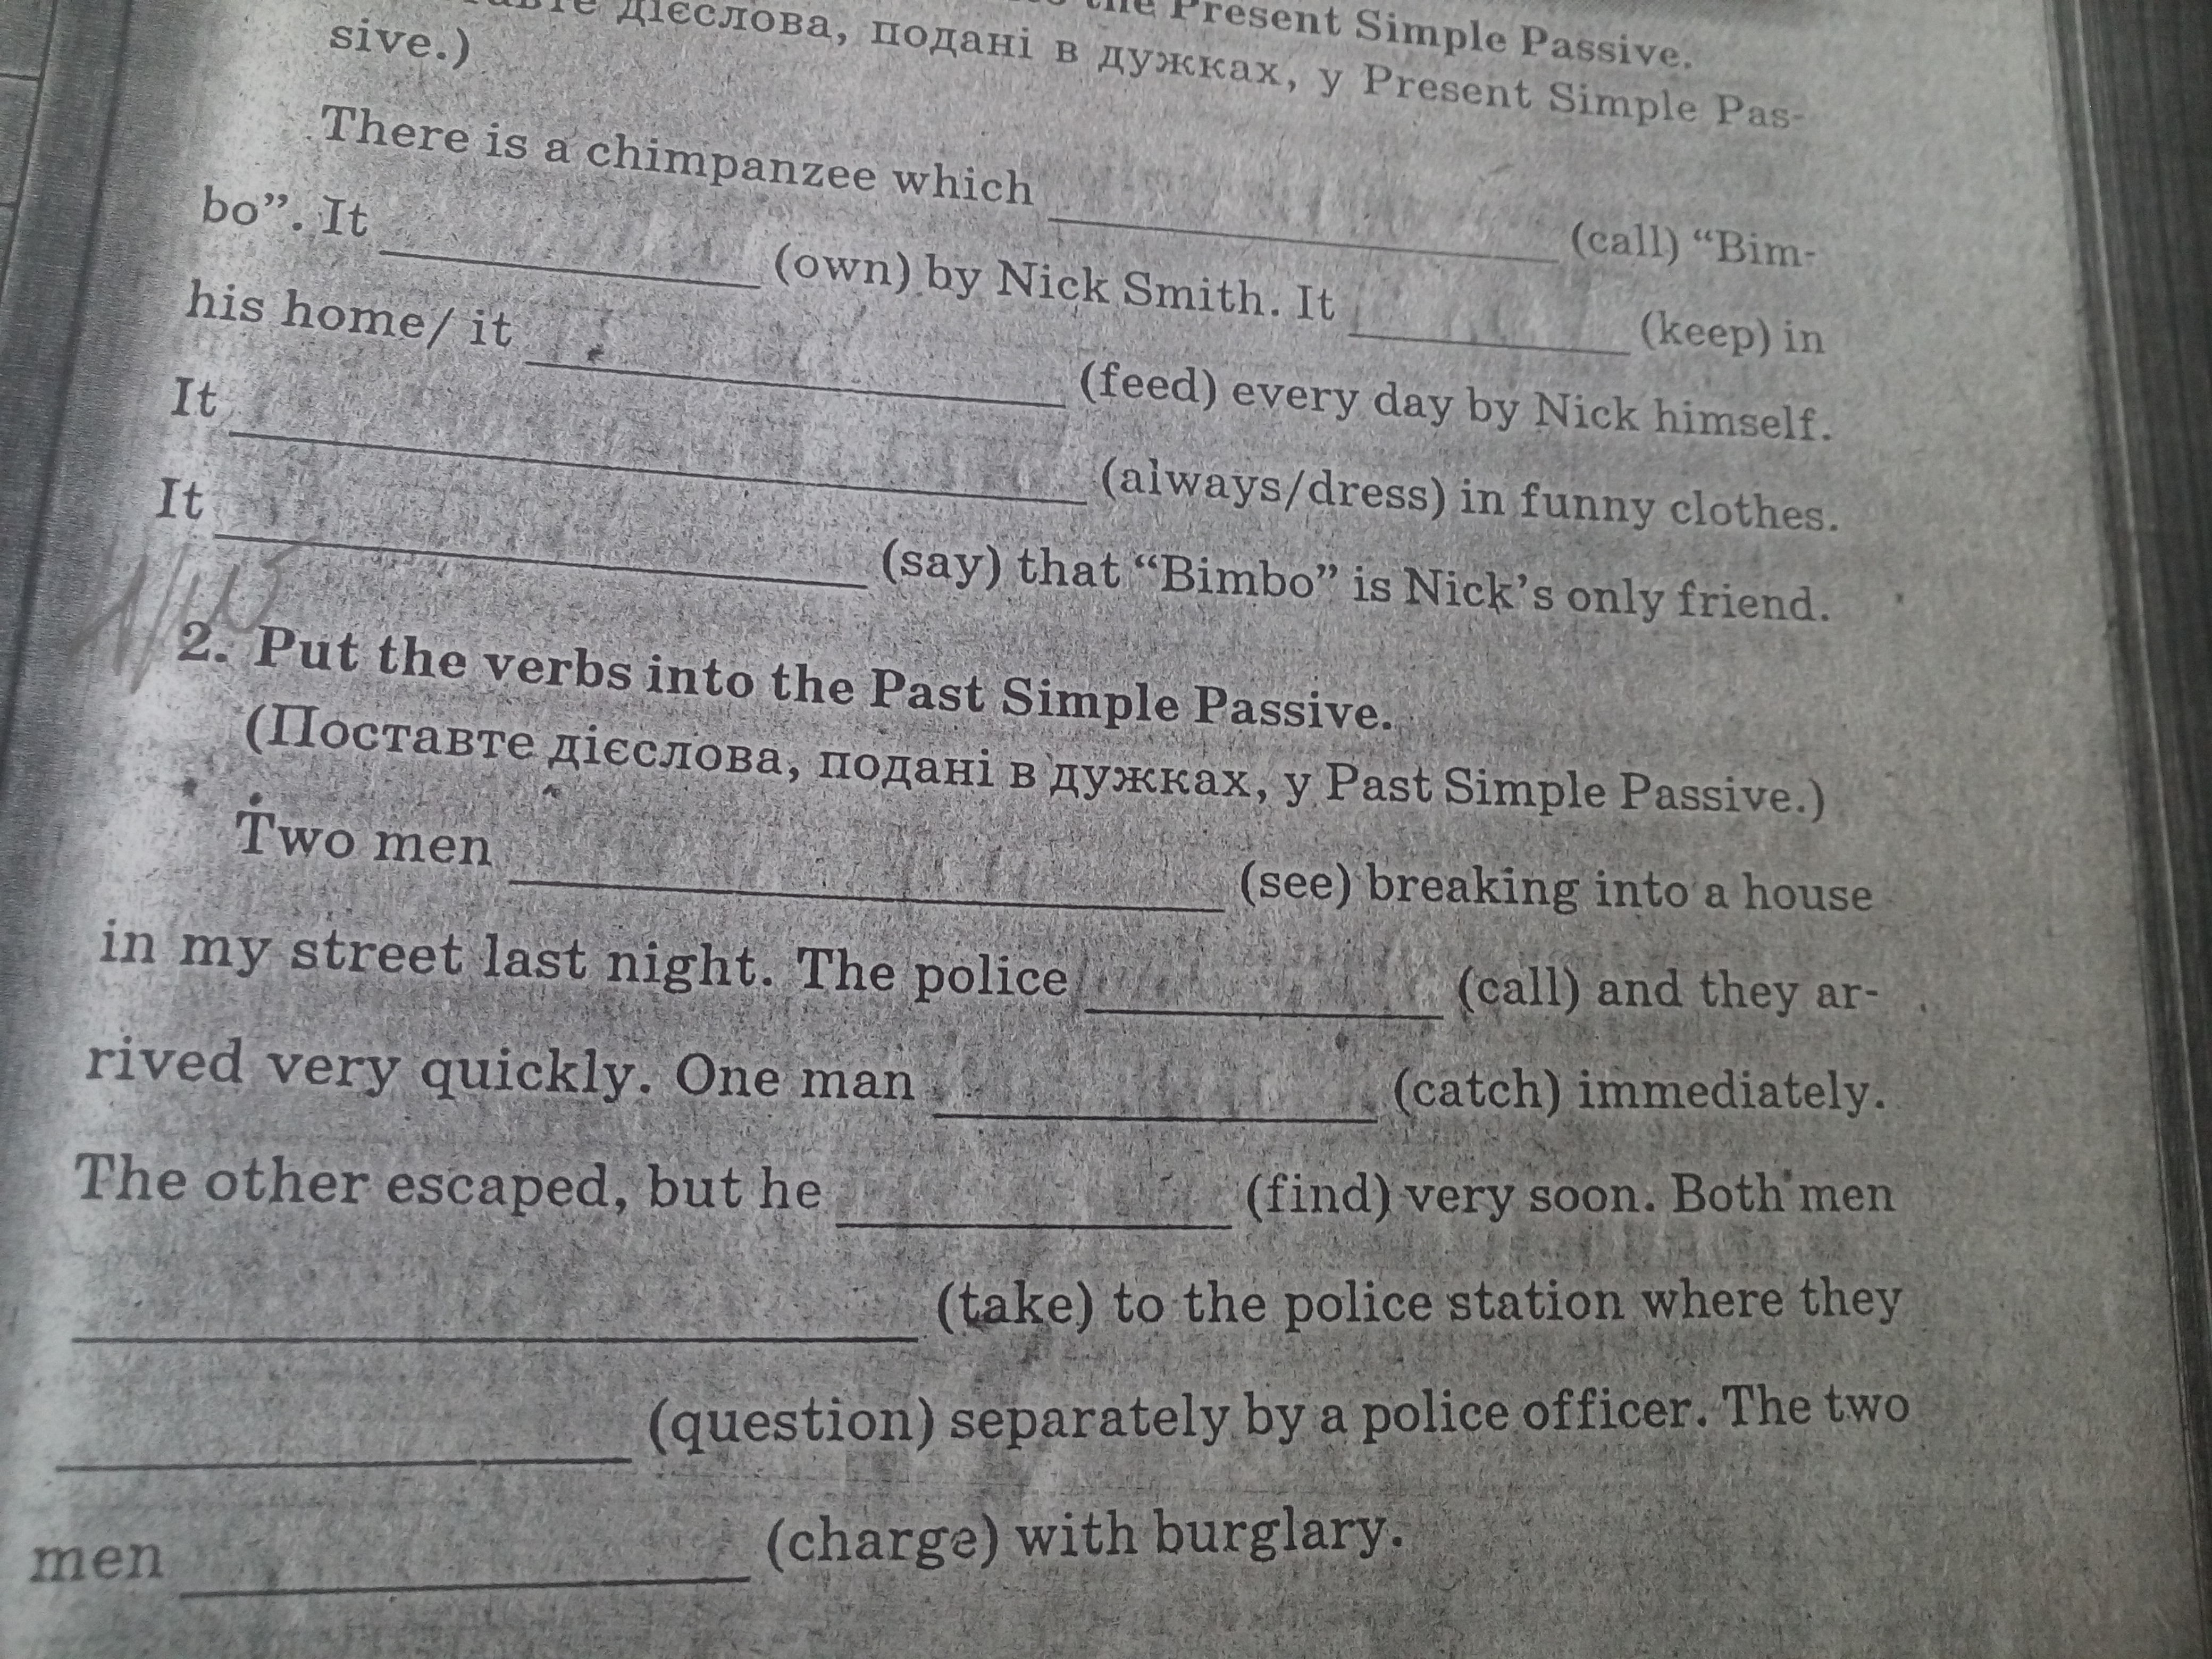 the Present Simple Passive.
дієслова, подані в дужках, у Present Simple Pas-
sive.)
There is a chimpanzee which ____ (call) “Bim-
bo”. It ____ (own) by Nick Smith. It ____ (keep) in
his home/ it ____ (feed) every day by Nick himself.
It ____ (always/dress) in funny clothes.
It ____ (say) that “Bimbo” is Nick’s only friend.
2. Put the verbs into the Past Simple Passive.
(Поставте дієслова, подані в дужках, у Past Simple Passive.)
Two men ____ (see) breaking into a house
in my street last night. The police ____ (call) and they ar-
rived very quickly. One man ____ (catch) immediately.
The other escaped, but he ____ (find) very soon. Both men
____ (take) to the police station where they
____ (question) separately by a police officer. The two
men ____ (charge) with burglary.